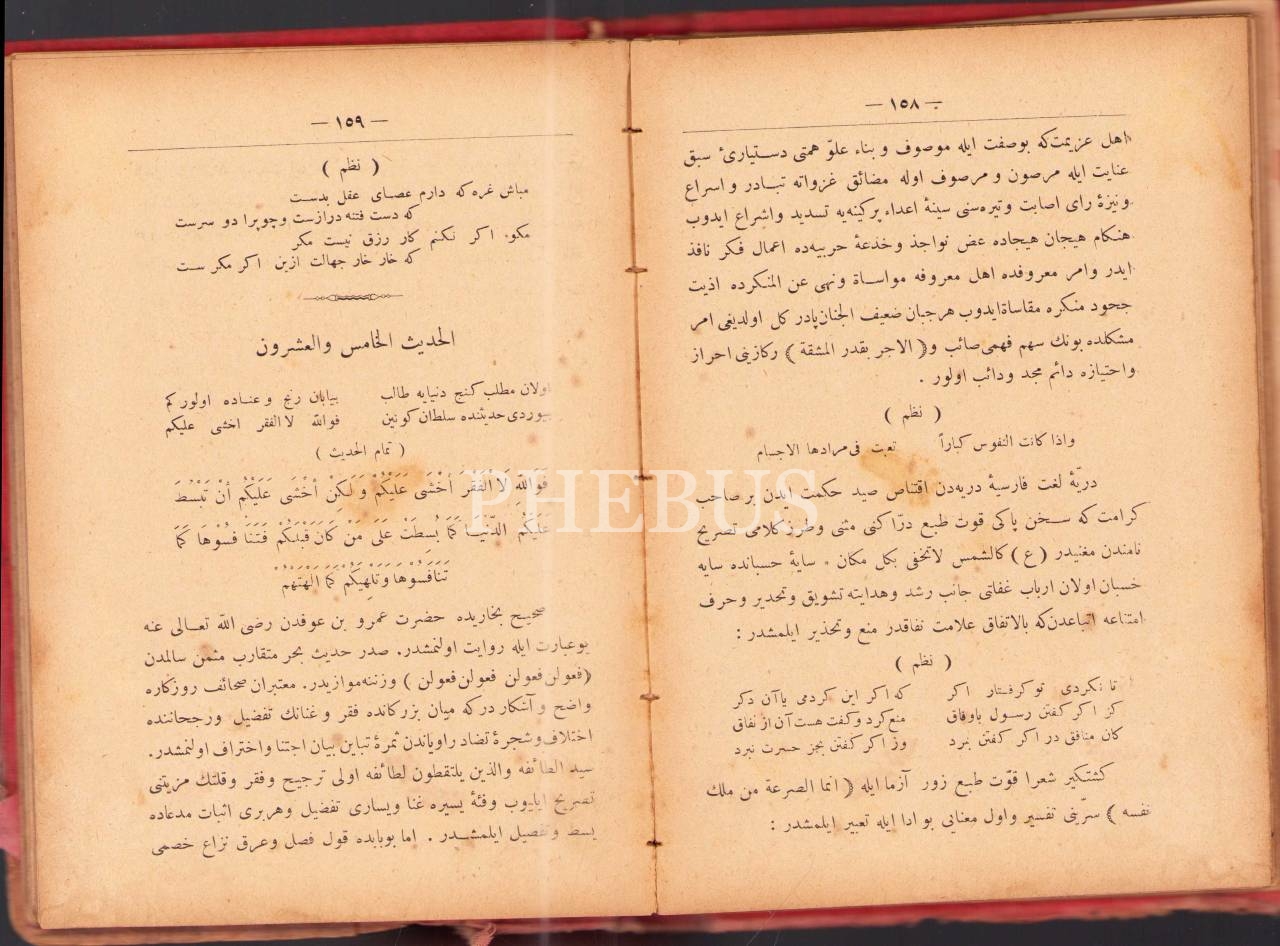 — ١٥٨ —
اهل عزیمت‌که بوصفت ایله موصوف و بناء علوّ همتی دستیاریٔ سبق
عنایت ایله مرصون و مرصوف اوله مضائق غزواته تبادر و اسراع
ونیزهٔ رای اصابت وتیره‌سنی سینهٔ اعداء پرکینه‌یه تسدید واشراع ایدوب
هنکام هیجان هیجاده عض نواجذ و خدعهٔ حربیه‌ده اعمال فکر نافذ
ایدر وامر معروفده اهل معروفه مواساة ونهی عن المنکرده اذیت
جحود منکره مقاساة ایدوب هرجبان ضعیف الجنان پادر کل اولدیغی امر
مشکلده بونك سهم فهمی صائب و﴿ الاجر بقدر المشقة ﴾ رکازینی احراز
واحتیازه دائم مجد ودائب اولور .
( نظم )
واذا کانت النفوس کباراً تعبت فی مرادها الاجسام
دریّهٔ لغت فارسیهٔ دریه‌دن اقتناص صید حکمت ایدن بر صاحب
کرامت که سخن پاکی قوت طبع درّاکنی مثنی وطرز کلامی تصریح
نامندن مغنیدر (ع) کالشمس لاتخفی بکل مکان . سایهٔ حسبانده سایه
خسبان اولان ارباب غفلتی جانب رشد وهدایته تشویق وتحدیر وحرف
امتناعه اتباعدن‌که بالاتفاق علامت نفاقدر منع وتحذیر ایلمشدر :
( نظم )
تا نکردی تو کرفتار اکر که اکر این کردمی یا آن دکر
کز اکر کفتن رسول باوفاق منع کرد وکفت هست آن از نفاق
کان منافق در اکر کفتن بمرد وز اکر کفتن بجز حسرت نبرد
کشتکیر شعرا قوّت طبع زور آزما ایله ﴿ انما الصرعة من ملك
نفسه ﴾ سرّینی تفسیر واول معنایی بو ادا ایله تعبیر ایلمشدر :
— ١٥٩ —
( نظم )
مباش غره که دارم عصای عقل بدست
که دست فتنه درازست وچوپرا دو سرست
مکو. اکر نکنم کار رزق نیست مکر
که خار خار جهالت ازین اکر مکر ست
الحدیث الخامس والعشرون
اولان مطلب کنج دنیایه طالب بیابان رنج وعناده اولور کم
بیوردی حدیثنده سلطان کونین فوالله لا الفقر اخشی علیکم
( تمام الحدیث )
فَوَاللّهِ لَا الْفَقْرَ أَخْشَى عَلَيْكُمْ وَلَكِنْ أَخْشَى عَلَيْكُمْ أَنْ تُبْسَطَ
عَلَيْكُمُ الدُّنْيَا كَمَا بُسِطَتْ عَلَى مَنْ كَانَ قَبْلَكُمْ فَتَنَافَسُوهَا كَمَا
تَنَافَسُوهَا وَتُلْهِيَكُمْ كَمَا أَلْهَتْهُمْ
صحیح بخاریده حضرت عمرو بن عوفدن رضی الله تعالی عنه
بوعبارت ایله روایت اولنمشدر. صدر حدیث بحر متقارب مثمن سالمدن
(فعولن فعولن فعولن فعولن ) وزننه موازیدر. معتبران صحائف روزکاره
واضح وآشکاردرکه میان بزرکانده فقر وغنانك تفضیل ورجحاننده
اختلاف وشجرهٔ تضاد راویاندن ثمرهٔ تباین بیان اجتنا واختراف اولنمشدر.
سید الطائفه والذین یلتقطون لطائفه اولی ترجیح وفقر وقلتك مزیتنی
تصریح ایلیوب وفئهٔ یسیره غنا ویساری تفضیل وهربری اثبات مدعاده
بسط وتفصیل ایلمشدر . اما بوبابده قول فصل وعرق نزاع خصمی
PHEBUS